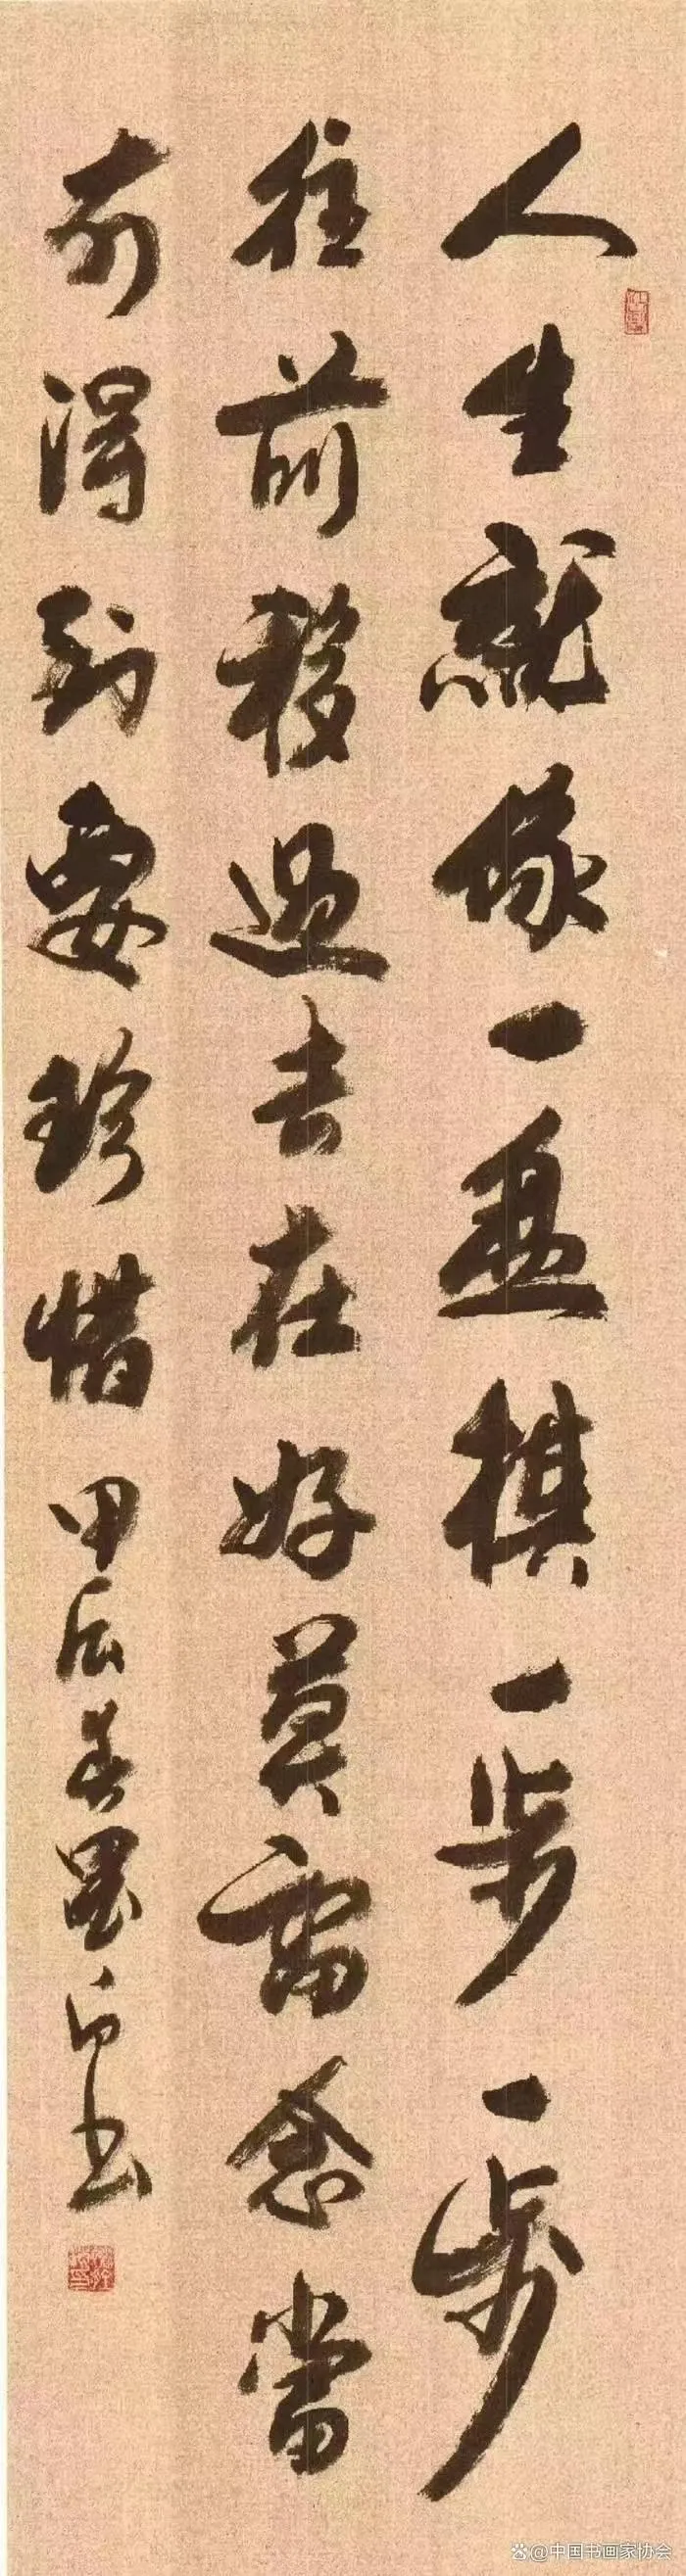 人生就像一盘棋一步一步
往前移過去在好莫留念當
前得到要珍惜
甲辰春书
@中国书画家协会